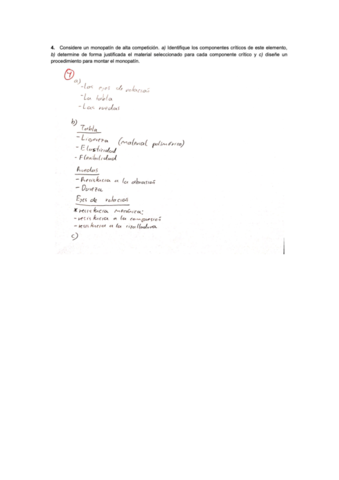 4. Considere un monopatín de alta competición. a) Identifique los componentes críticos de este elemento,
b) determine de forma justificada el material seleccionado para cada componente crítico y c) diseñe un
procedimiento para montar el monopatín.
4
a)
- Los ejes de rotación
- La tabla
- Las ruedas
b)
Tabla
- Ligereza (material polimérico)
- Elasticidad
- Flexibilidad
Ruedas
- Resistencia a la abrasión
- Dureza
Ejes de rotación
resistencia mecánica:
- resistencia a la compresión
- resistencia a la
c)